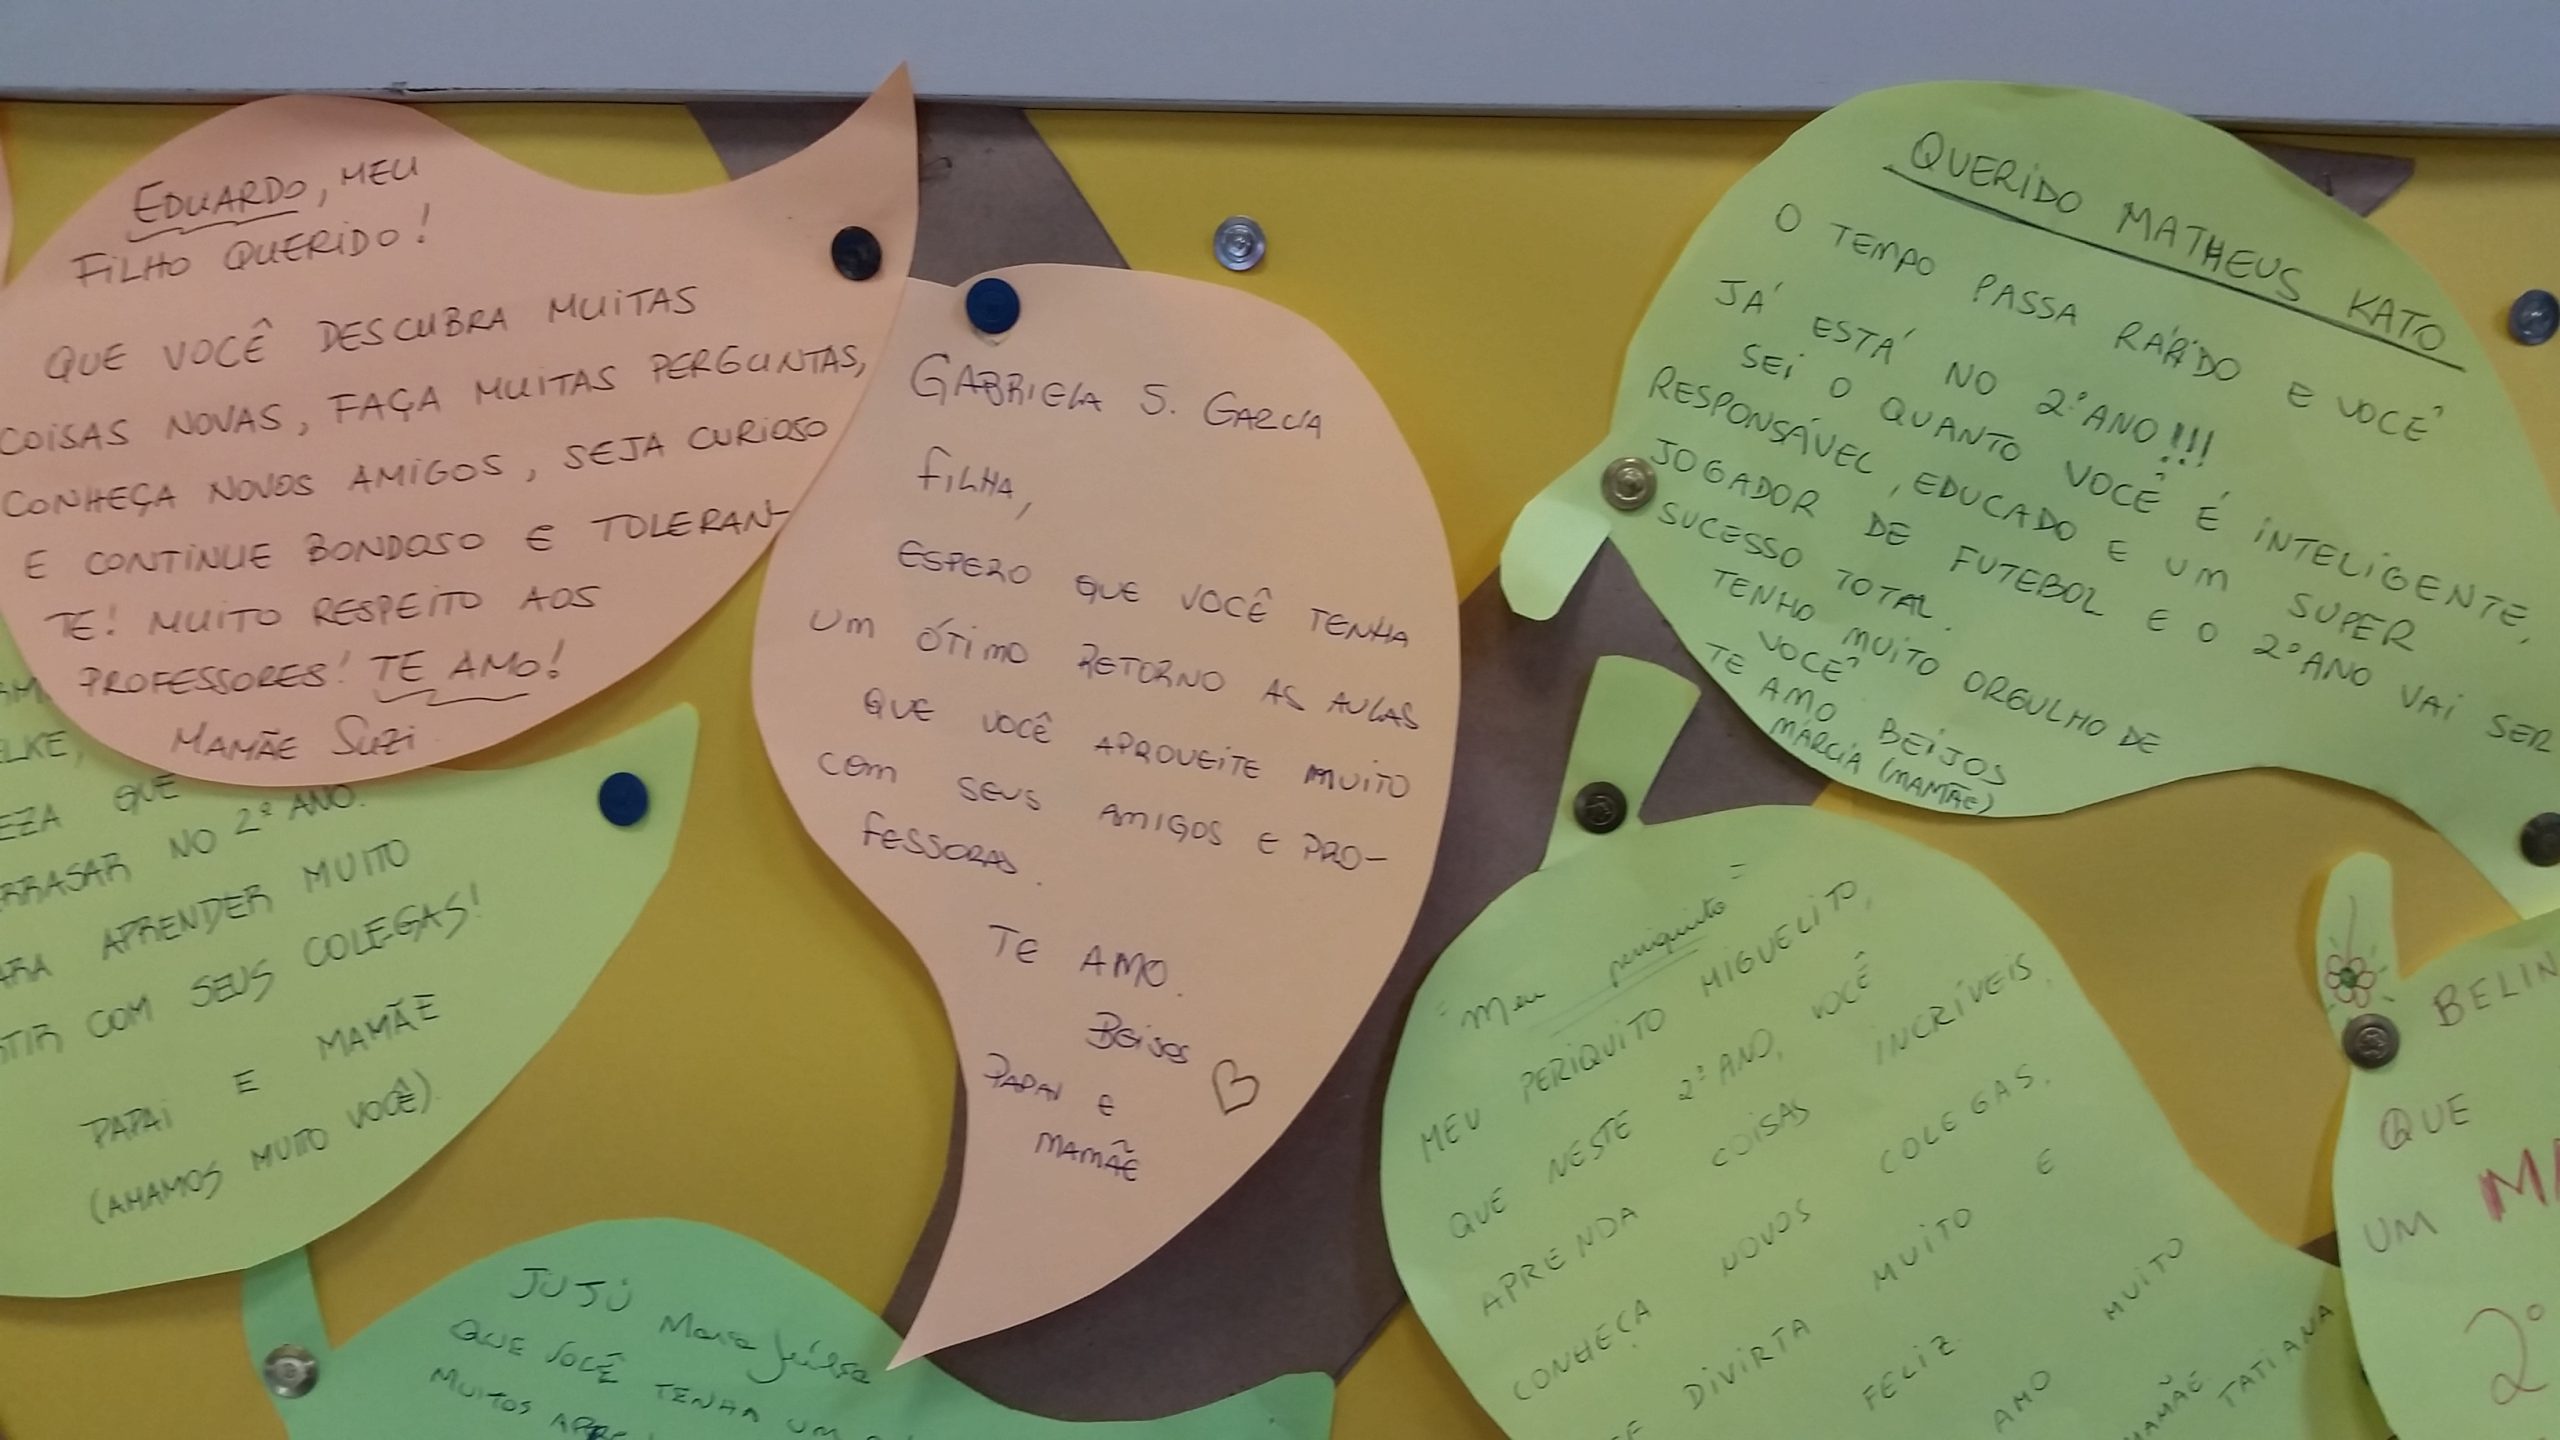 EDUARDO, MEU
FILHO QUERIDO!
QUE VOCÊ DESCUBRA MUITAS
COISAS NOVAS, FAÇA MUITAS PERGUNTAS,
CONHEÇA NOVOS AMIGOS, SEJA CURIOSO
E CONTINUE BONDOSO E TOLERAN-
TE! MUITO RESPEITO AOS
PROFESSORES! TE AMO!
MAMÃE SUZI
QUE
NO 2º ANO.
APRENDER MUITO
COM SEUS COLEGAS!
PAPAI E MAMÃE
(AMAMOS MUITO VOCÊ).
GABRIELA S. GARCIA
FILHA,
ESPERO QUE VOCÊ TENHA
UM ÓTIMO RETORNO AS AULAS
QUE VOCÊ APROVEITE MUITO
COM SEUS AMIGOS E PRO-
FESSORAS.
TE AMO.
BEIJOS
PAPAI E
MAMÃE
QUERIDO MATHEUS KATO
O TEMPO PASSA RÁPIDO E VOCÊ
JÁ ESTÁ NO 2º ANO!!!
SEI O QUANTO VOCÊ É INTELIGENTE,
RESPONSÁVEL, EDUCADO E UM SUPER
JOGADOR DE FUTEBOL E O 2º ANO VAI SER
SUCESSO TOTAL.
TENHO MUITO ORGULHO DE
VOCÊ
TE AMO BEIJOS
MÁRCIA (MAMÃE)
"Meu periquito"
MEU PERIQUITO MIGUELITO,
QUE NESTE 2º ANO, VOCÊ
APRENDA COISAS INCRÍVEIS,
CONHEÇA NOVOS COLEGAS,
SE DIVIRTA MUITO E
FELIZ
AMO MUITO
MAMÃE TATIANA
JUJÚ Maria Júlia
QUE VOCÊ TENHA UM
MUITOS
QUE
UM
2º